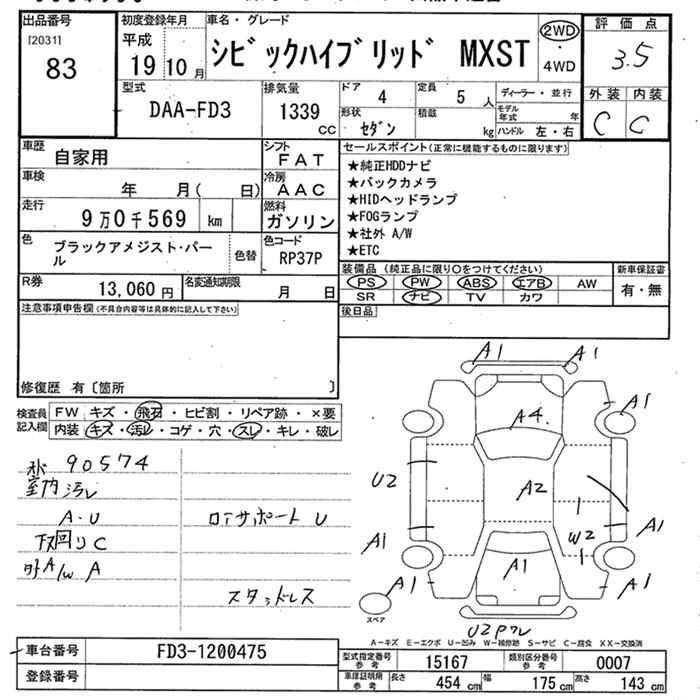 出品番号 初度登録年月 車名・グレード 評価点
[2031] 平成 シビックハイブリッド MXST 2WD 3.5
83 19 10月 4WD
型式 排気量 ドア 4 定員 5 人 ディーラー・並行 外装 内装
DAA-FD3 1339 cc 形状 セダン 積載 kg モデル年式 年 C C
ハンドル 左・右
車歴 自家用 シフト FAT セールスポイント(正常に機能するものに限ります)
車検 年 月( 日) 冷房 AAC ★純正HDDナビ
★バックカメラ
走行 9万0千569 km 燃料 ガソリン ★HIDヘッドランプ
★FOGランプ
色 ブラックアメジスト・パール 色替 色コード RP37P ★社外 A/W
★ETC
R券 13,060円 名変通知期限 月 日 装備品(純正品に限り○をつけてください) 新車保証書
PS PW ABS エアB AW 有・無
SR ナビ TV カワ
注意事項申告欄(不具合内容等は具体的に記入して下さい) 後日品
修復歴 有〔箇所 〕
検査員記入欄 FW キズ・飛石・ヒビ割・リペア跡・×要
内装 キズ・汚レ・コゲ・穴・スレ・キレ・破レ
A1 A1
A4 A1
U2 A2
A1 W2 A1
A1 A1 A1
スペア
U2PWレ
90574
室内汚レ
A・U ロアサポート U
下回り C
外A/W A
スタッドレス
A-キズ E-エクボ U-凹み W-補修跡 S-サビ C-腐食 XX-交換済
車台番号 FD3-1200475 型式指定番号 参考 15167 類別区分番号 参考 0007
登録番号 車庫証明用 参考 長さ 454 cm 幅 175 cm 高さ 143 cm